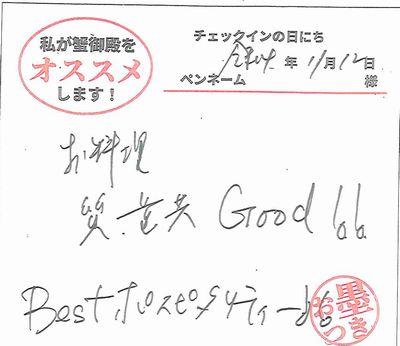 私が蟹御殿を
オススメ
します！
チェックインの日にち
令和4年 11月12日
ペンネーム 様
お料理
質・量共 Good
Best ホスピタリティー
墨つき
お